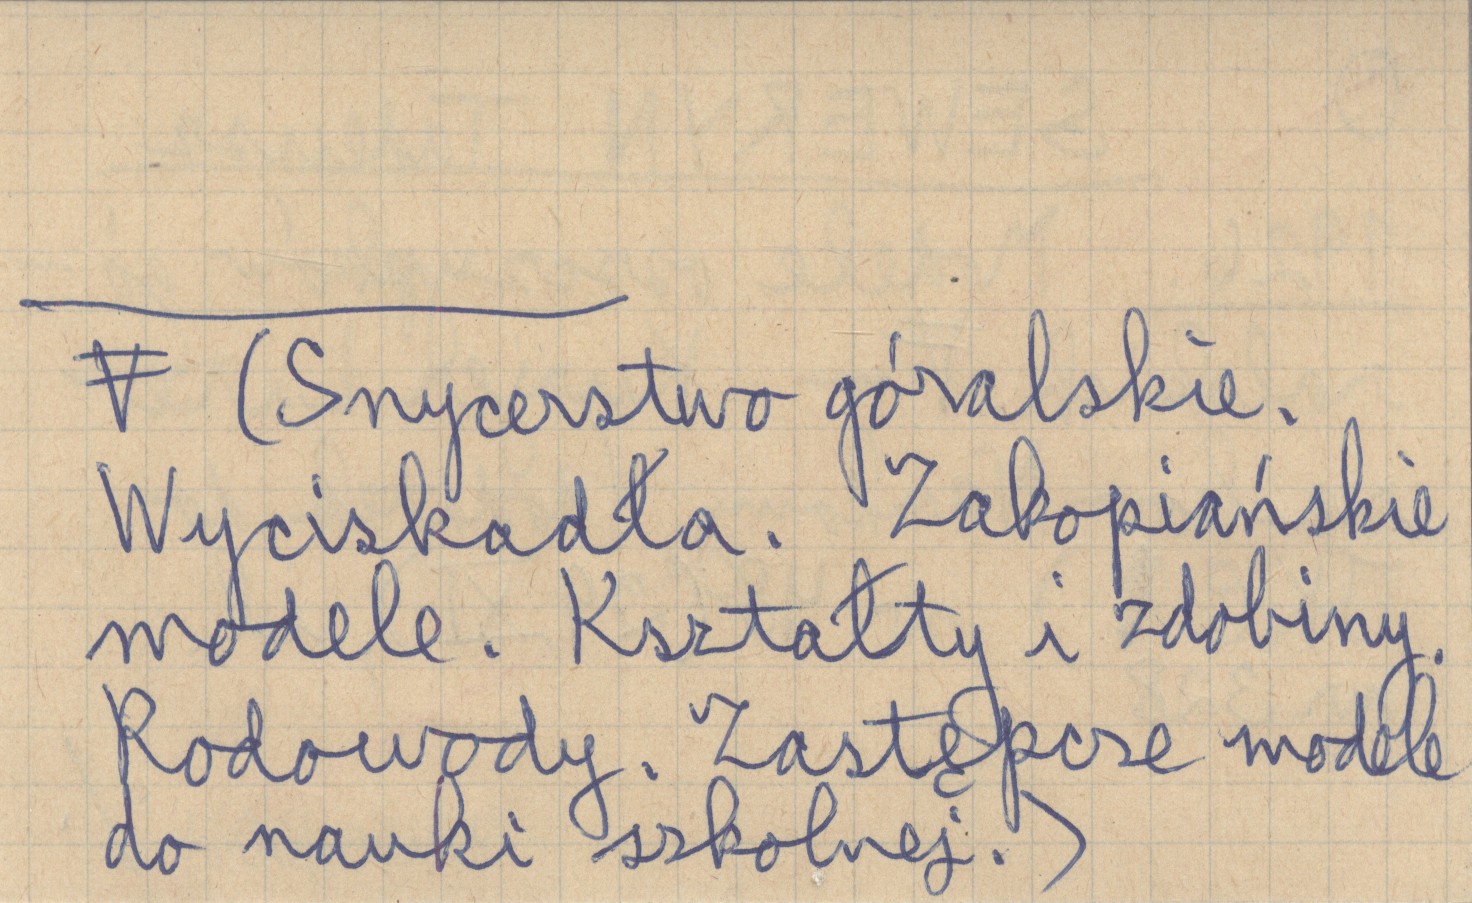 ∀ (Snycerstwo góralskie.
Wyciskadła. Zakopiańskie
modele. Kształty i zdobiny.
Rodowody. Zastępcze modele
do nauki szkolnej.)